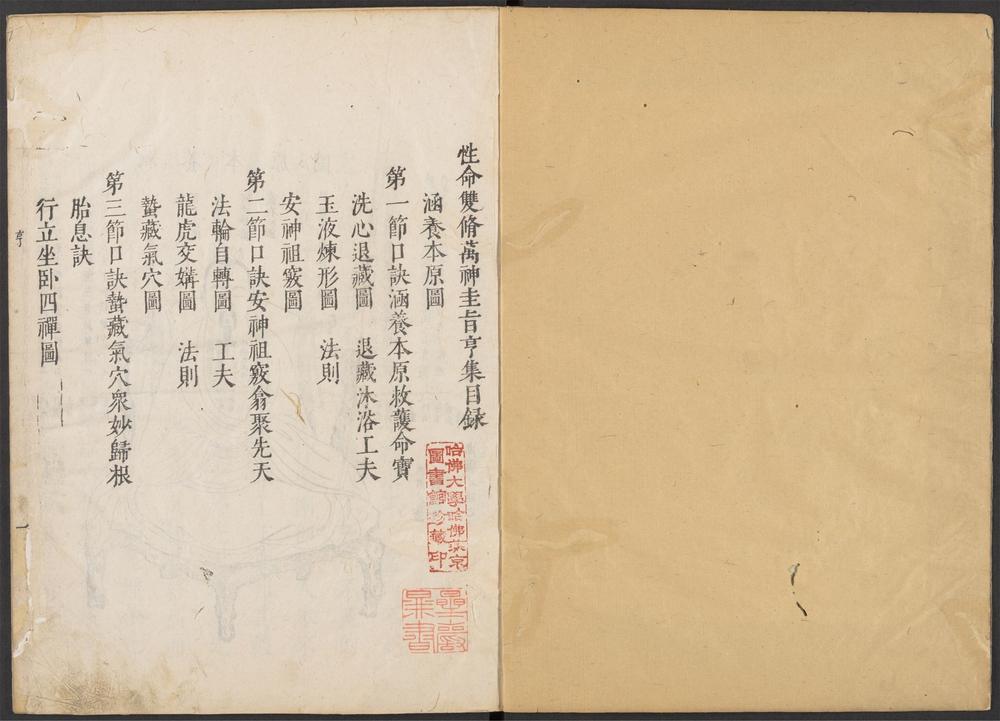 性命雙脩萬神圭旨亨集目録
涵養本原圖
第一節口訣涵養本原救護命寶
洗心退藏圖　退藏沐浴工夫
玉液煉形圖　法則
安神祖竅圖
第二節口訣安神祖竅翕聚先天
法輪自轉圖　工夫
龍虎交媾圖　法則
蟄藏氣穴圖
第三節口訣蟄藏氣穴衆妙歸根
胎息訣
行立坐卧四禪圖
亨
一
哈佛大學哈佛燕京
圖書館珍藏印